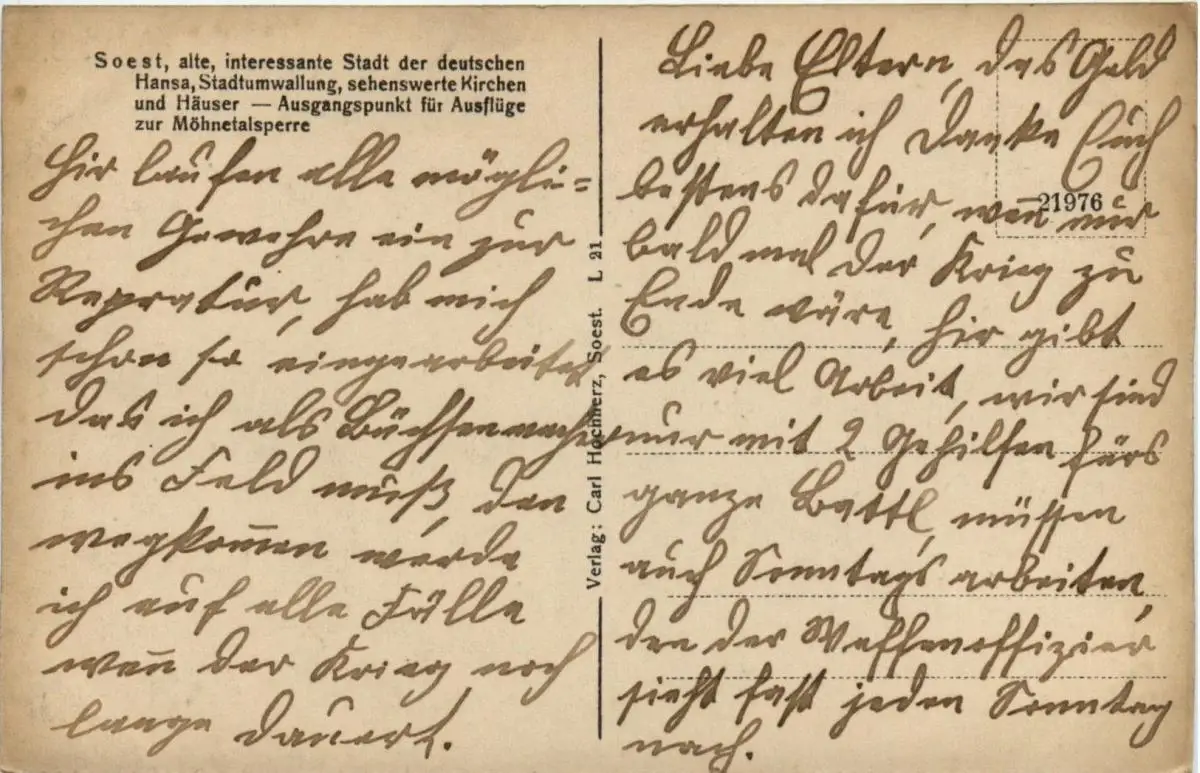 Soest, alte, interessante Stadt der deutschen
Hansa, Stadtumwallung, sehenswerte Kirchen
und Häuser — Ausgangspunkt für Ausflüge
zur Möhnetalsperre
Hir laufen alle mögli=
chen Gewehre ein zur
Repratur, hab mich
schon so eingearbeitet
das ich als Büchsenmacher
ins Feld muß, den
wegkom̅en werde
ich auf alle Fälle
wen̅ der Krieg noch
lange dauert.
Verlag: Carl Hochherz, Soest. L 21
Liebe Eltern, das Geld
erhalten ich Danke Euch
bestens dafür, wen̅ nur
21976
bald mal der Krieg zu
Ende wäre, hir gibt
es viel Arbeit, wir sind
nur mit 2 Gehilfen fürs
ganze Battl, müssen
auch Sonntags arbeiten,
den der Waffenoffizier
sieht fast jeden Sonntag
nach.